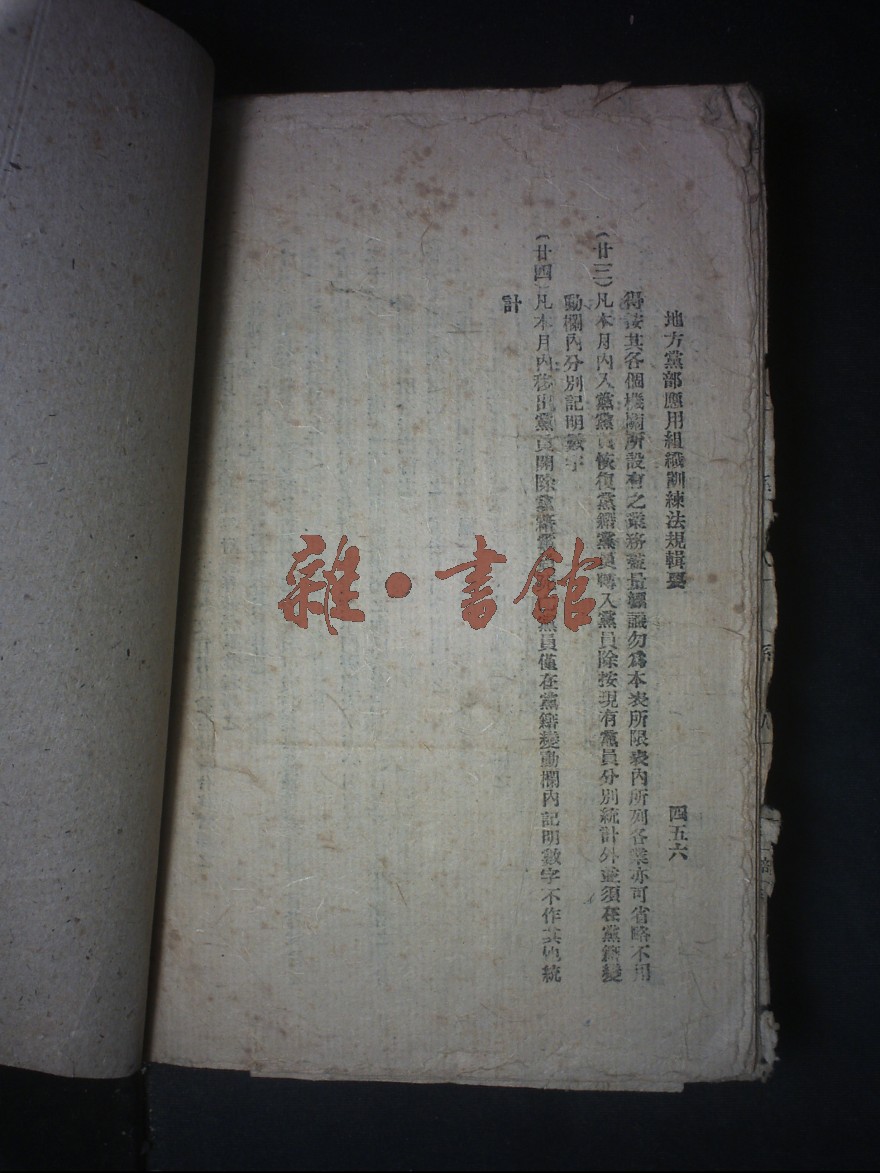 地方黨部應用組織訓練法規輯要
四五六
得按其各個機關所設有之業務盡量填勿爲本表所限表內所列各業亦可省略不用
(廿三)凡本月內入黨黨員恢復黨籍黨員轉入黨員除按現有黨員分別統計外並須在黨籍變
動欄內分別記明數字
(廿四)凡本月內移出黨員開除黨籍黨員僅在黨籍變動欄內記明數字不作其他統
計
雜·書館